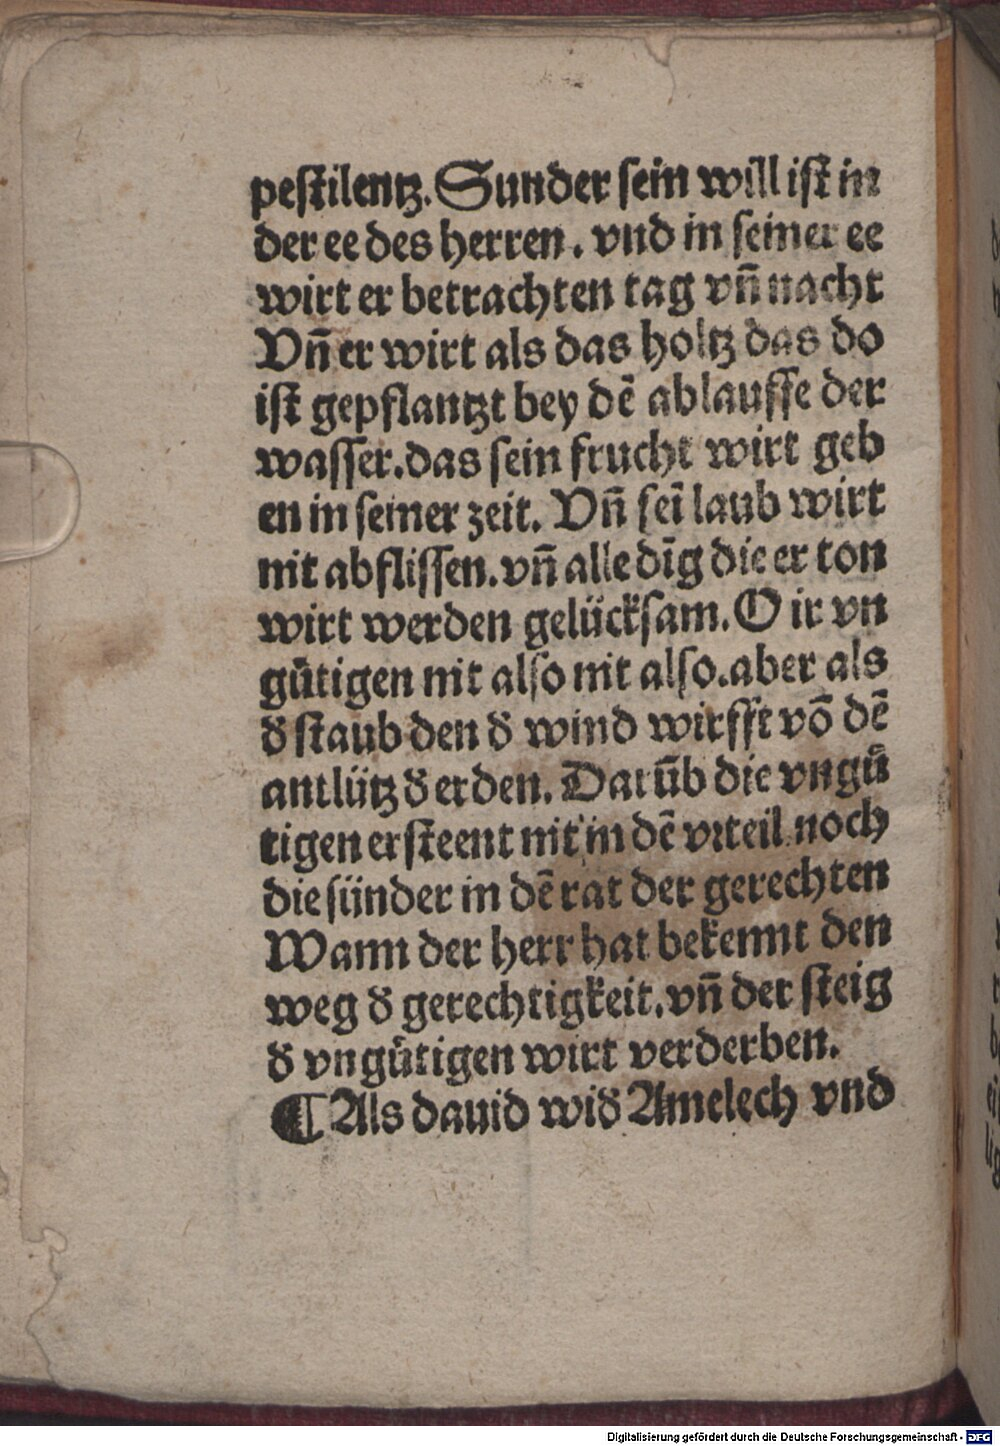 pestilentz. Sunder sein will ist in
der ee des herren. vnd in seiner ee
wirt er betrachten tag vn̄ nacht
Vn̄ er wirt als das holtz das do
ist gepflantzt bey dē ablauffe der
wasser. das sein frucht wirt geb
en in seiner zeit. Vn̄ sei̅ laub wirt
nit abflissen. vn̄ alle di̅g die er ton
wirt werden gelücksam. O ir vn
gütigen nit also nit also. aber als
đ staub den đ wind wirfft vō dē
antlütz đ erden. Darūb die vngü
tigen ersteent nit in dē vrteil noch
die sünder in dē rat der gerechten
Wann der herr hat bekennt den
weg đ gerechtigkeit. vn̄ der steig
đ vngütigen wirt verderben.
¶ Als dauid wiđ Amelech vnd
Digitalisierung gefördert durch die Deutsche Forschungsgemeinschaft - DFG